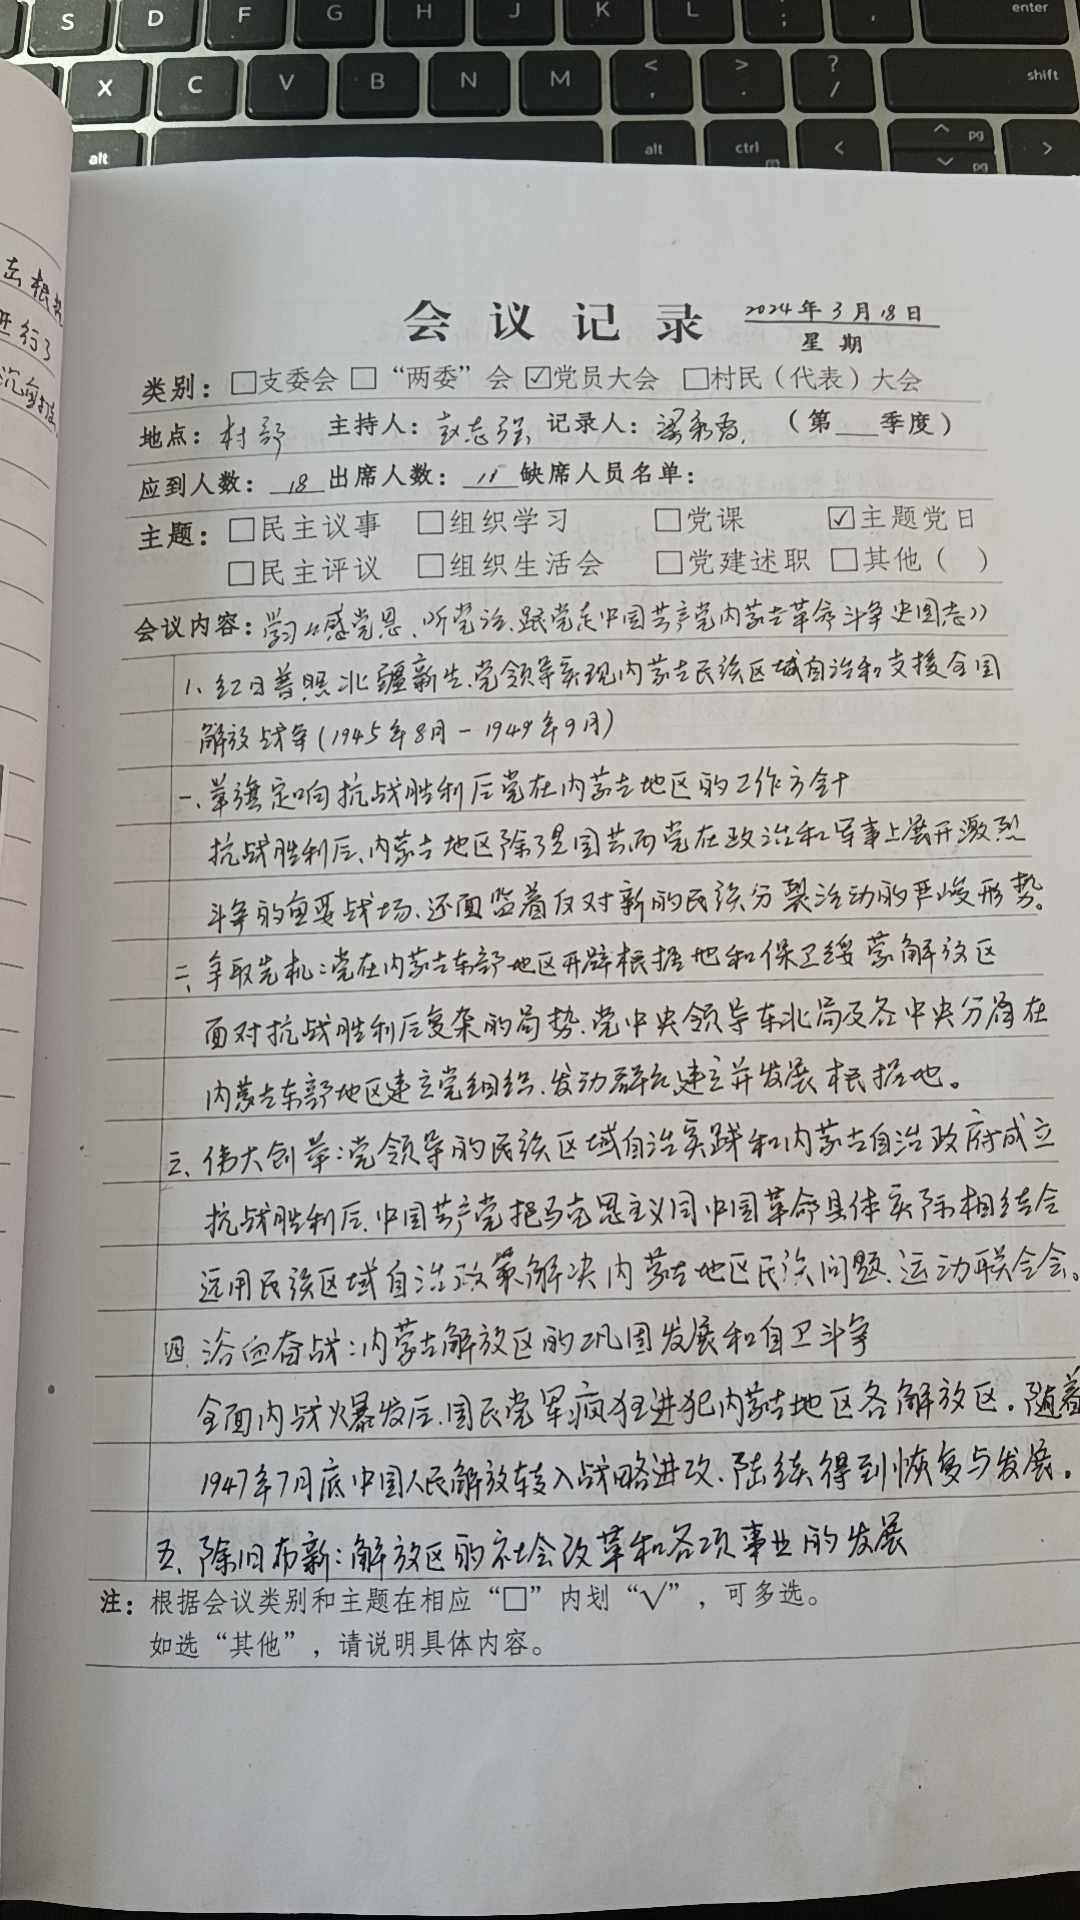 S D F G H J K L : ; " ' enter
X C V B N M < , > . ? / shift
alt alt ctrl < pg pg >
击根
进行了
会议记录 2024年3月18日
星期
类别：□支委会 □“两委”会 ☑党员大会 □村民（代表）大会
地点：村部 主持人：赵志强 记录人： （第___季度）
应到人数：18 出席人数：11 缺席人员名单：
主题：□民主议事 □组织学习 □党课 ☑主题党日
□民主评议 □组织生活会 □党建述职 □其他（ ）
会议内容：学习《感党恩、听党话、跟党走中国共产党内蒙古革命斗争史图志》
1、红日普照北疆新生、党领导实现内蒙古民族区域自治和支援全国
解放战争(1945年8月-1949年9月)
一、举旗定向抗战胜利后党在内蒙古地区的工作方针
抗战胜利后、内蒙古地区除了是国共两党在政治和军事上展开激烈
斗争的重要战场、还面临着反对新的民族分裂活动的严峻形势。
二、争取先机：党在内蒙古东部地区开辟根据地和保卫绥蒙解放区
面对抗战胜利后复杂的局势、党中央领导东北局及各中央分局在
内蒙古东部地区建立党组织、发动群众建立并发展根据地。
三、伟大创举：党领导的民族区域自治实践和内蒙古自治政府成立
抗战胜利后、中国共产党把马克思主义同中国革命具体实际相结合
运用民族区域自治政策解决内蒙古地区民族问题、运动联合会。
四、浴血奋战：内蒙古解放区的巩固发展和自卫斗争
全面内战火爆发后、国民党军疯狂进犯内蒙古地区各解放区。随着
1947年7月底中国人民解放转入战略进攻、陆续得到恢复与发展。
五、除旧布新：解放区的社会改革和各项事业的发展
注：根据会议类别和主题在相应“□”内划“√”，可多选。
如选“其他”，请说明具体内容。